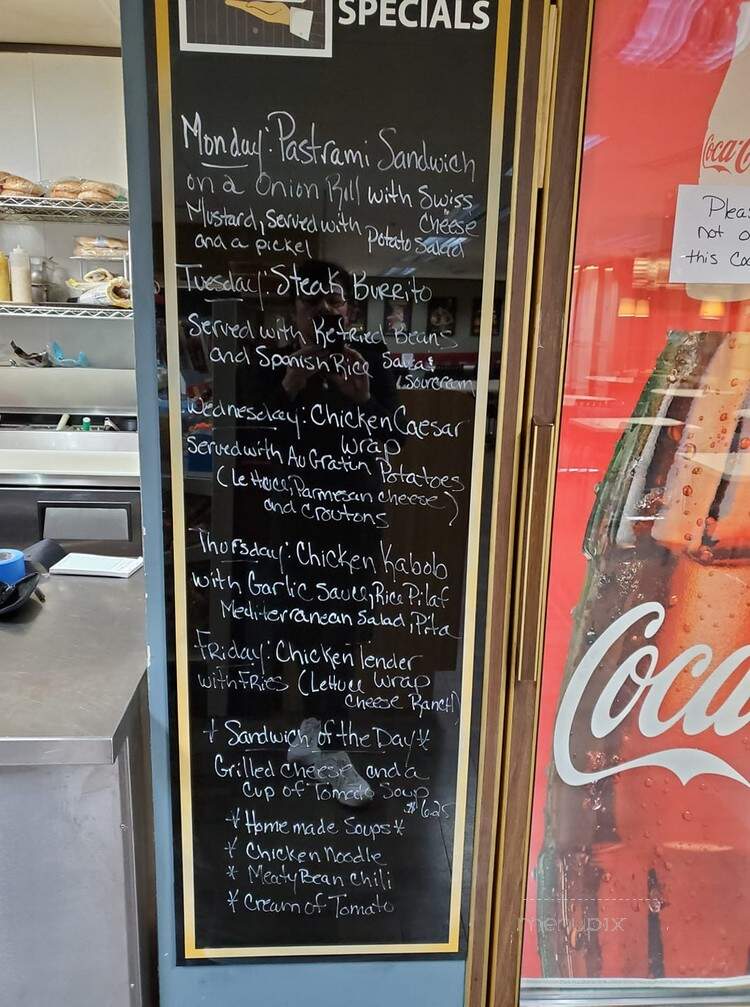 SPECIALS
Monday: Pastrami Sandwich
on a Onion Roll with Swiss
Cheese
Mustard, Served with Potato Salad
and a pickel
Tuesday: Steak Burrito
Served with Refried Beans
and Spanish Rice Salsa &
Sourcream
Wednesday: Chicken Caesar
Wrap
Served with Au Gratin Potatoes
(Lettuce, Parmesan cheese)
and croutons
Thursday: Chicken Kabob
with Garlic Sauce, Rice Pilaf
Mediterranean Salad, Pita
Friday: Chicken Tender
Wrap
with Fries (Lettuce
Cheese Ranch)
* Sandwich of the Day *
Grilled Cheese and a
Cup of Tomato Soup
$6.25
* Homemade Soups *
* Chicken Noodle
* Meaty Bean Chili
* Cream of Tomato
Coca-C
Plea
not o
this Coo
Coca
menupix